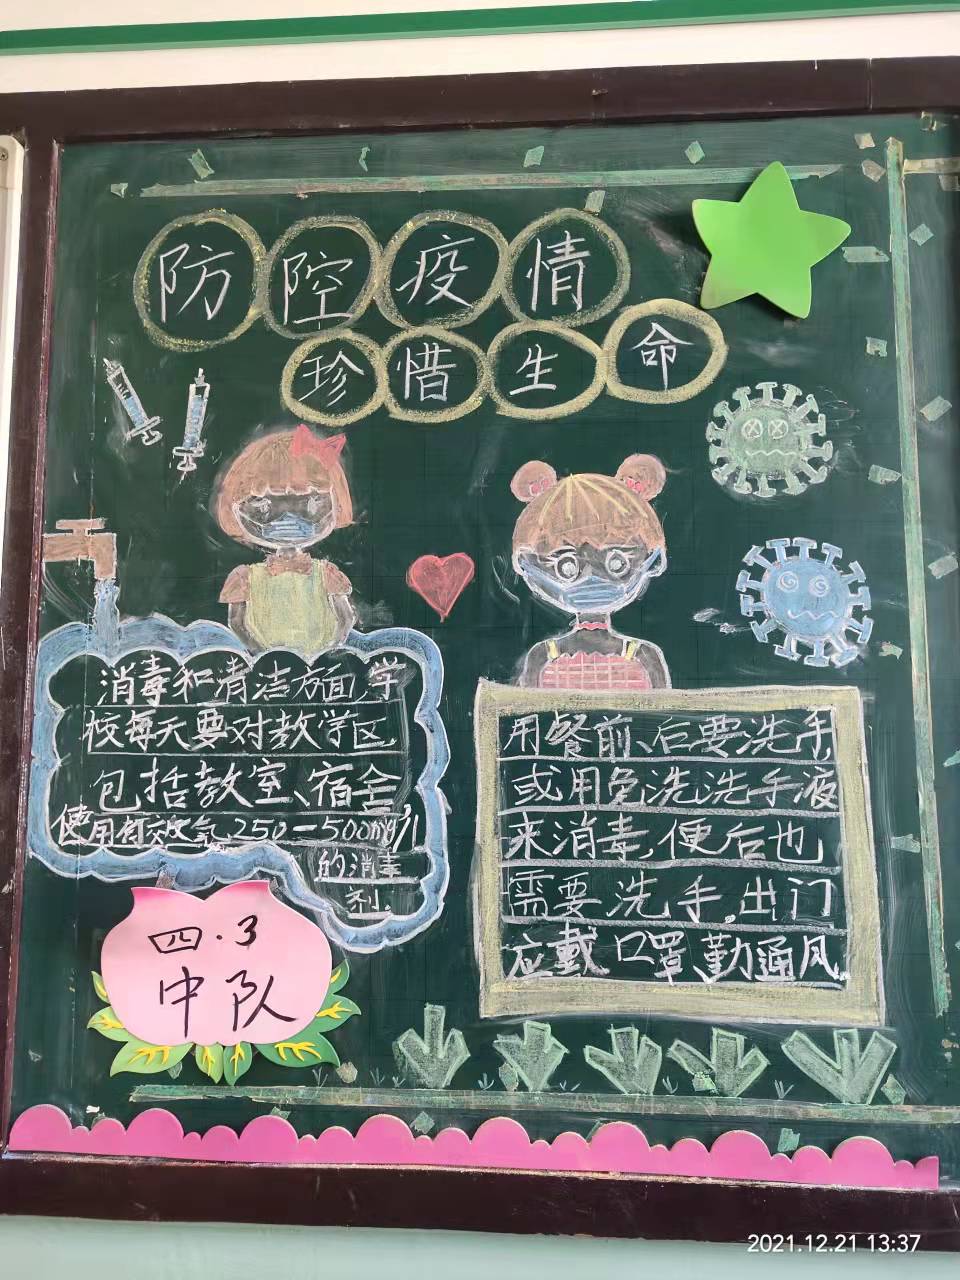 防控疫情
珍惜生命
消毒和清洁方面,学
校每天要对教学区,
包括教室、宿舍,
使用有效氯250-500mg/l
的消毒
剂.
用餐前、后要洗手,
或用免洗洗手液
来消毒,便后也
需要洗手。出门
应戴口罩、勤通风.
四.3
中队
2021.12.21 13:37